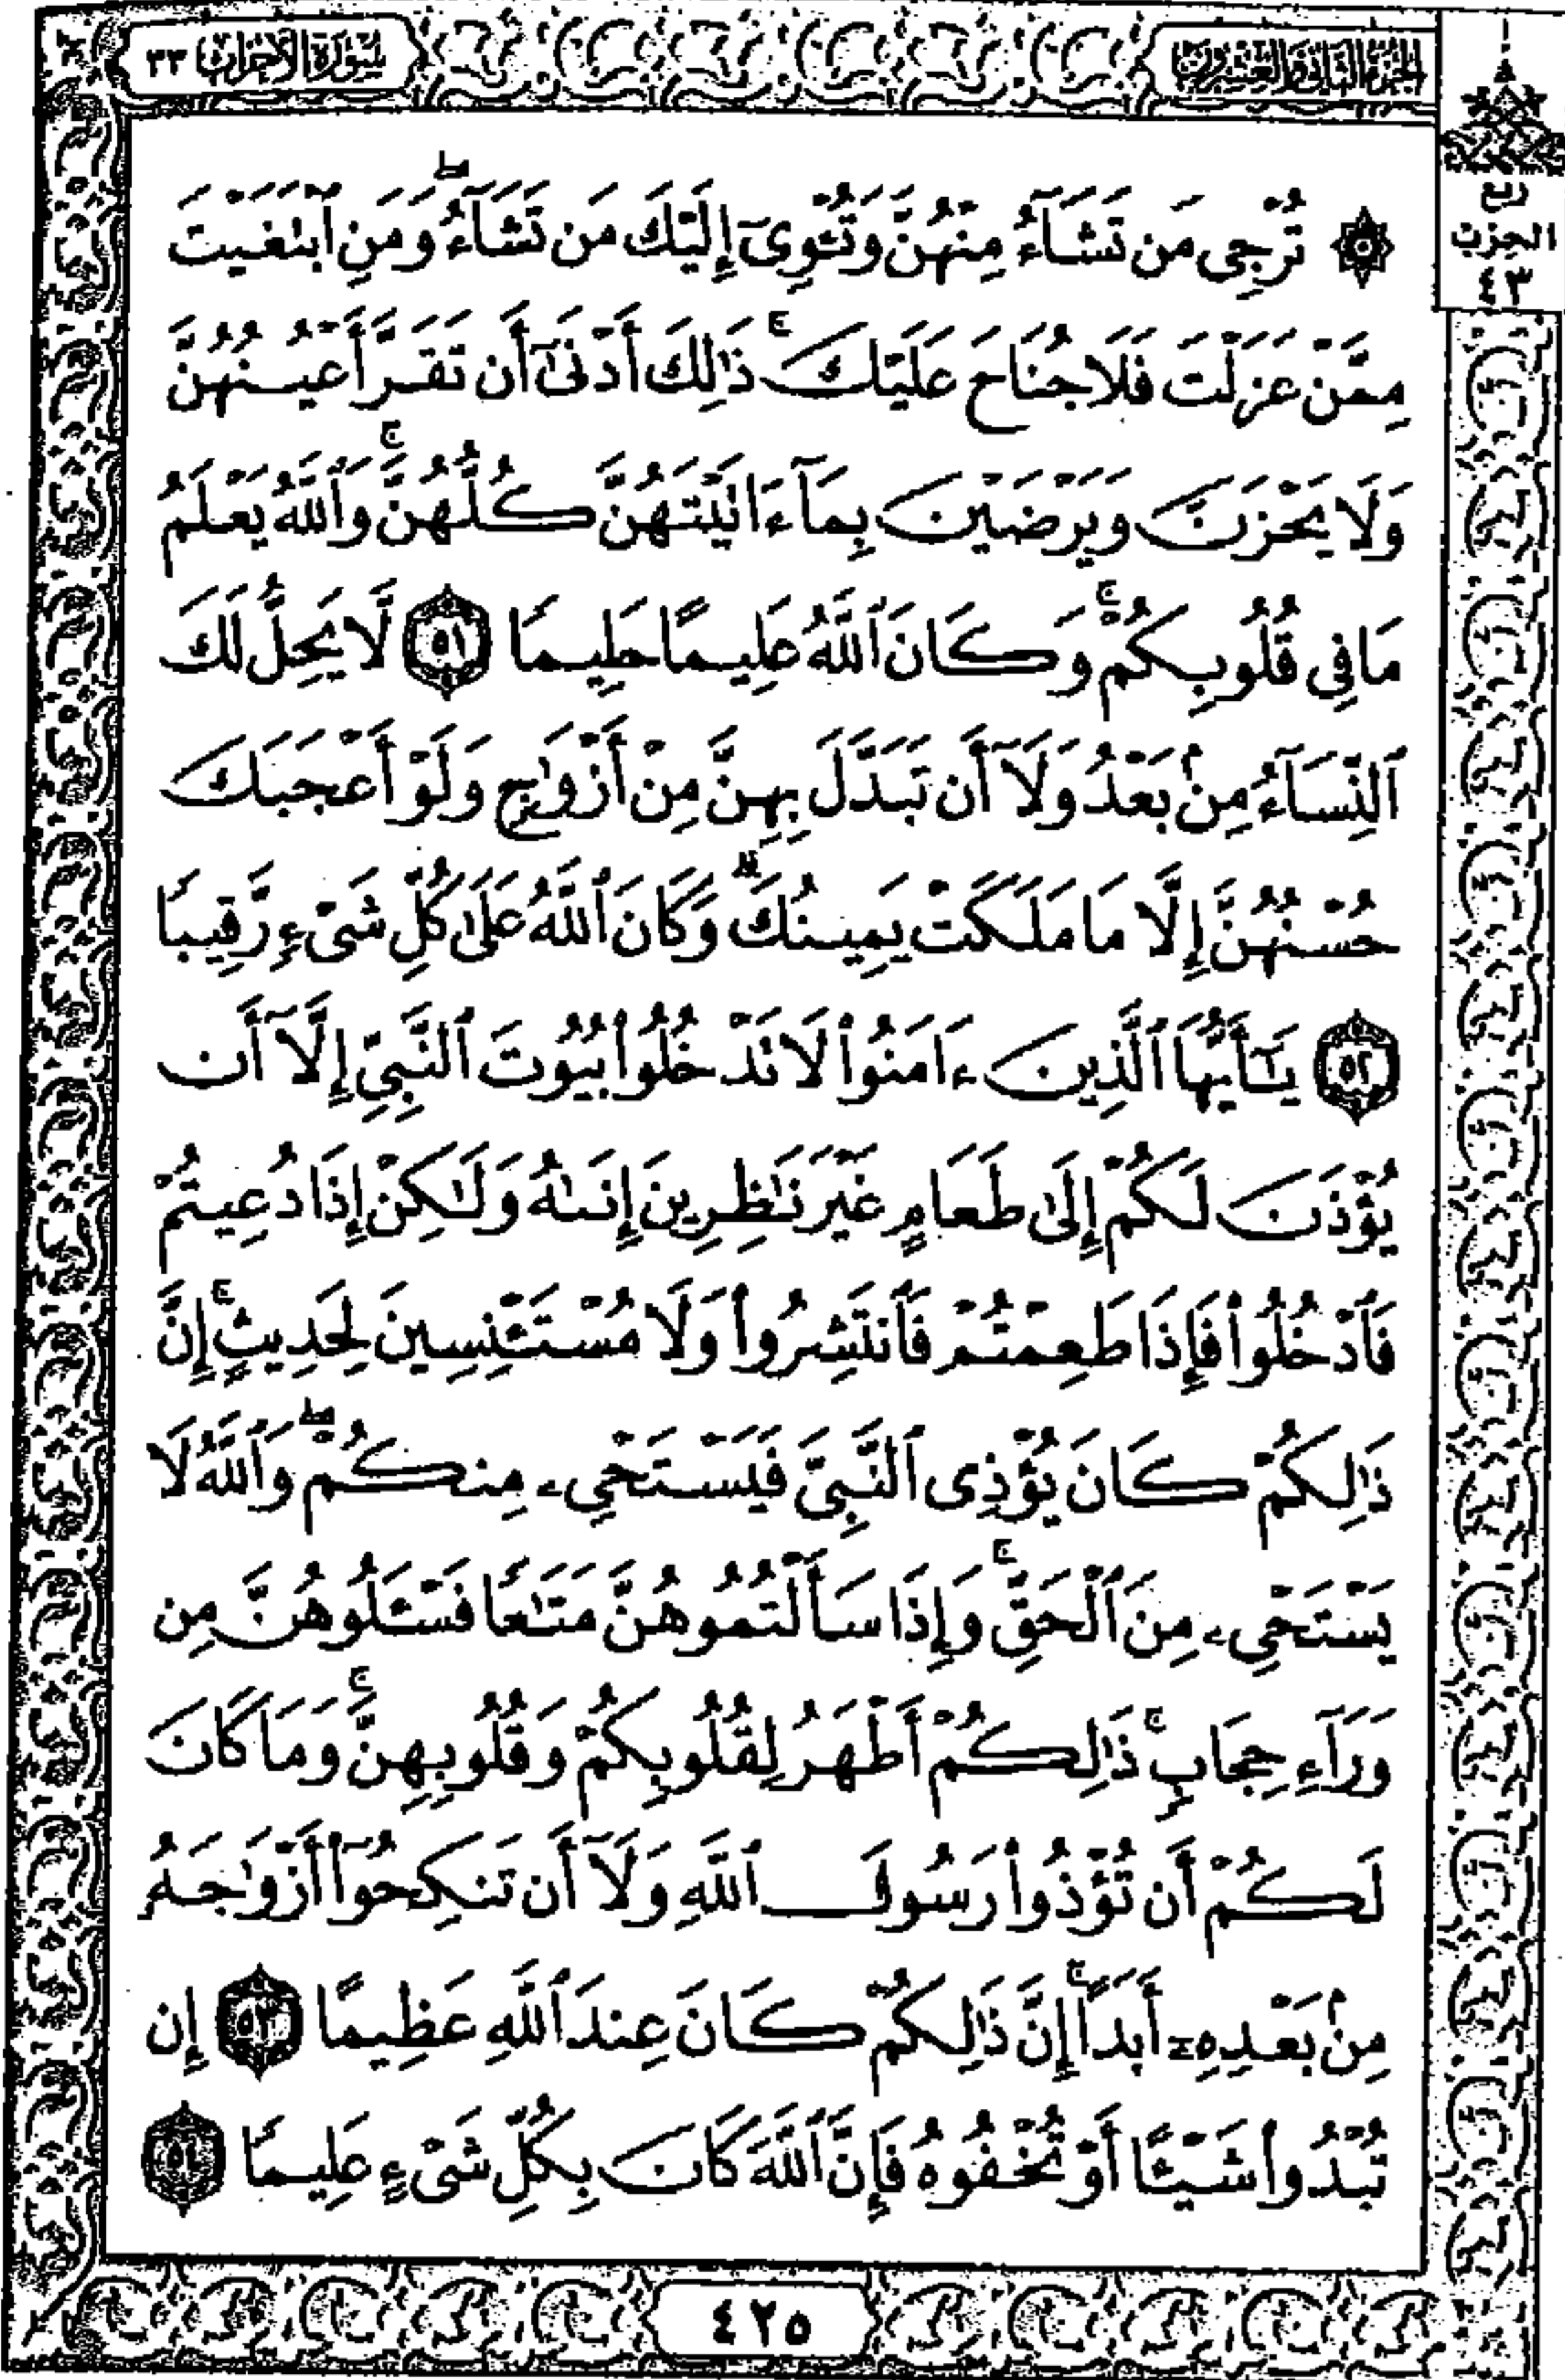 الجزء الثاني والعشرون
سورة الأحزاب ٣٣
ربع
الحزب
٤٣
۞ تُرْجِى مَن تَشَآءُ مِنْهُنَّ وَتُـْٔوِىٓ إِلَيْكَ مَن تَشَآءُ ۖ وَمَنِ ٱبْتَغَيْتَ
مِمَّنْ عَزَلْتَ فَلَا جُنَاحَ عَلَيْكَ ۚ ذَٰلِكَ أَدْنَىٰٓ أَن تَقَرَّ أَعْيُنُهُنَّ
وَلَا يَحْزَنَّ وَيَرْضَيْنَ بِمَآ ءَاتَيْتَهُنَّ كُلُّهُنَّ ۚ وَٱللَّهُ يَعْلَمُ
مَا فِى قُلُوبِكُمْ ۚ وَكَانَ ٱللَّهُ عَلِيمًا حَلِيمًا ٥١ لَّا يَحِلُّ لَكَ
ٱلنِّسَآءُ مِنۢ بَعْدُ وَلَآ أَن تَبَدَّلَ بِهِنَّ مِنْ أَزْوَٰجٍ وَلَوْ أَعْجَبَكَ
حُسْنُهُنَّ إِلَّا مَا مَلَكَتْ يَمِينُكَ ۗ وَكَانَ ٱللَّهُ عَلَىٰ كُلِّ شَىْءٍ رَّقِيبًا
٥٢ يَـٰٓأَيُّهَا ٱلَّذِينَ ءَامَنُوا۟ لَا تَدْخُلُوا۟ بُيُوتَ ٱلنَّبِىِّ إِلَّآ أَن
يُؤْذَنَ لَكُمْ إِلَىٰ طَعَامٍ غَيْرَ نَـٰظِرِينَ إِنَىٰهُ وَلَـٰكِنْ إِذَا دُعِيتُمْ
فَٱدْخُلُوا۟ فَإِذَا طَعِمْتُمْ فَٱنتَشِرُوا۟ وَلَا مُسْتَـْٔنِسِينَ لِحَدِيثٍ ۚ إِنَّ
ذَٰلِكُمْ كَانَ يُؤْذِى ٱلنَّبِىَّ فَيَسْتَحْىِۦ مِنكُمْ ۖ وَٱللَّهُ لَا
يَسْتَحْىِۦ مِنَ ٱلْحَقِّ ۚ وَإِذَا سَأَلْتُمُوهُنَّ مَتَـٰعًا فَسْـَٔلُوهُنَّ مِن
وَرَآءِ حِجَابٍ ۚ ذَٰلِكُمْ أَطْهَرُ لِقُلُوبِكُمْ وَقُلُوبِهِنَّ ۚ وَمَا كَانَ
لَكُمْ أَن تُؤْذُوا۟ رَسُولَ ٱللَّهِ وَلَآ أَن تَنكِحُوٓا۟ أَزْوَٰجَهُۥ
مِنۢ بَعْدِهِۦٓ أَبَدًا ۚ إِنَّ ذَٰلِكُمْ كَانَ عِندَ ٱللَّهِ عَظِيمًا ٥٣ إِن
تُبْدُوا۟ شَيْـًٔا أَوْ تُخْفُوهُ فَإِنَّ ٱللَّهَ كَانَ بِكُلِّ شَىْءٍ عَلِيمًا ٥٤
٤٢٥